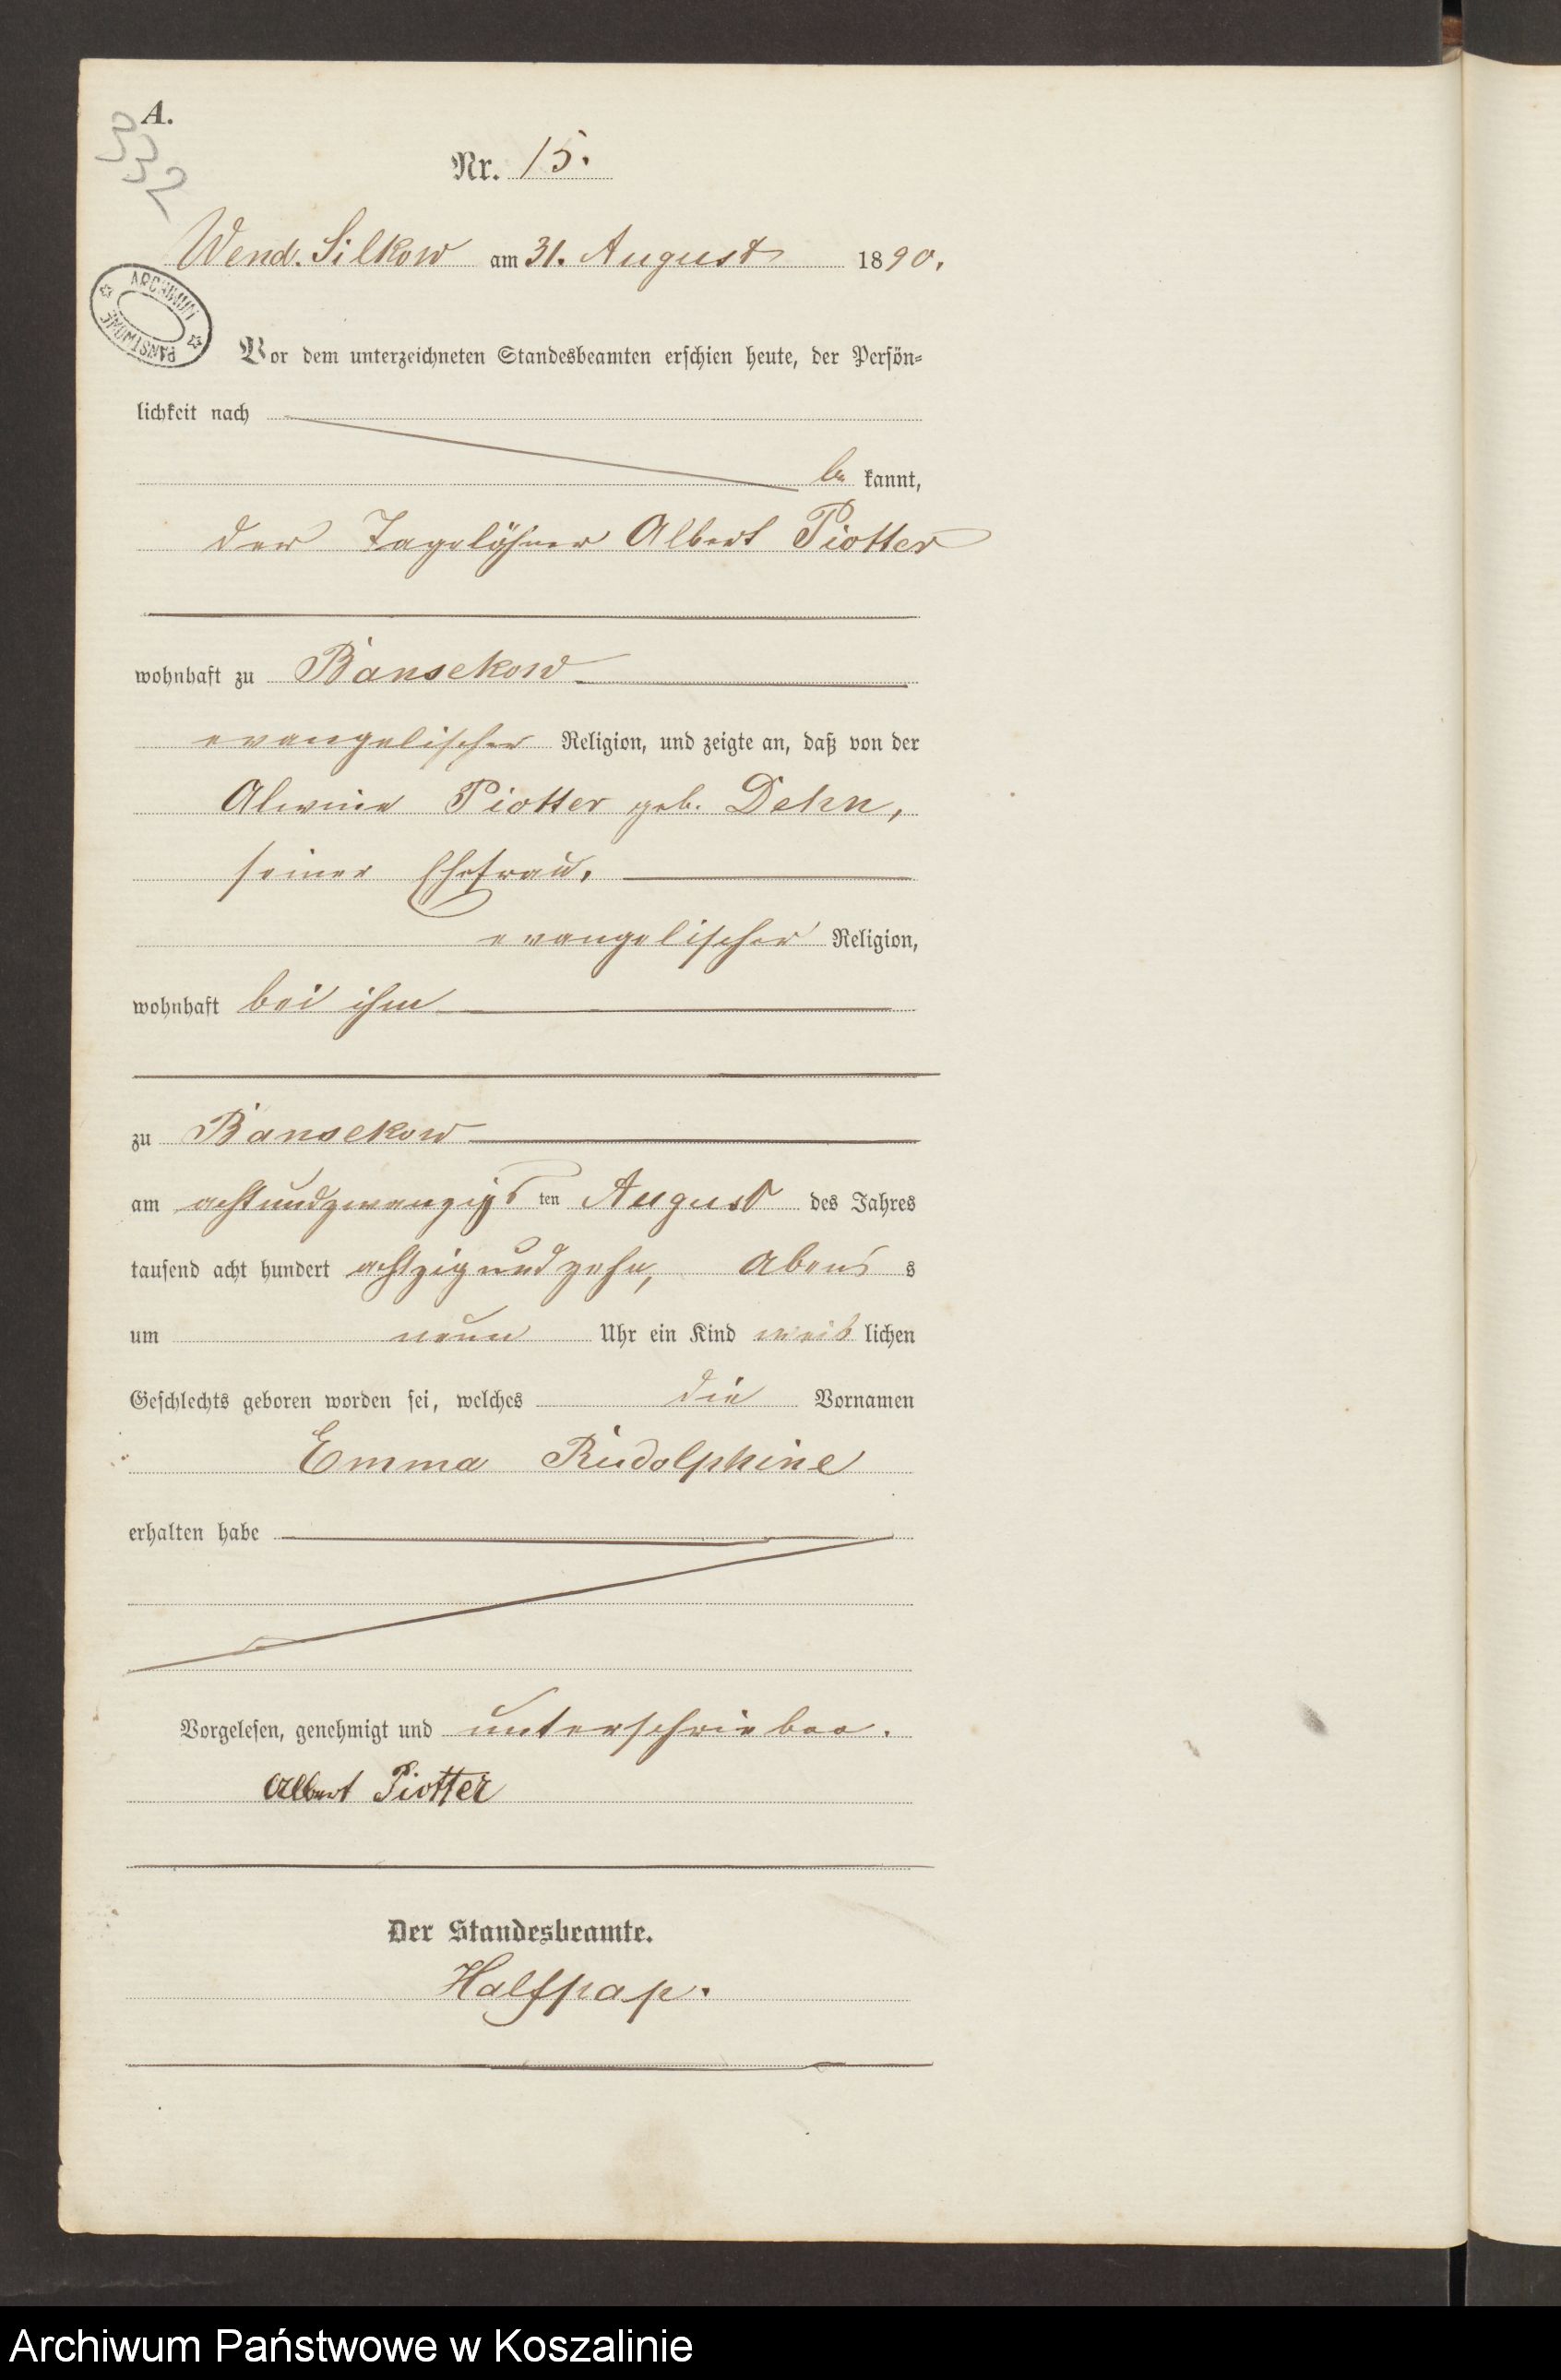 A.
332
Nr. 15.
Wend. Silkow am 31. August 1890.
ARCHIWUM PAŃSTWOWE
Vor dem unterzeichneten Standesbeamten erschien heute, der Persön-
lichkeit nach
be kannt,
der Tagelöhner Albert Piotter
wohnhaft zu Bansekow
evangelischer Religion, und zeigte an, daß von der
Alwine Piotter geb. Dehn,
seiner Ehefrau,
evangelischer Religion,
wohnhaft bei ihm
zu Bansekow
am achtundzwanzigs ten August des Jahres
tausend acht hundert achtzig und zehn, Abend s
um neun Uhr ein Kind weib lichen
Geschlechts geboren worden sei, welches die Vornamen
Emma Rudolphine
erhalten habe
Vorgelesen, genehmigt und unterschrieben.
Albert Piotter
Der Standesbeamte.
Halfpap.
Archiwum Państwowe w Koszalinie